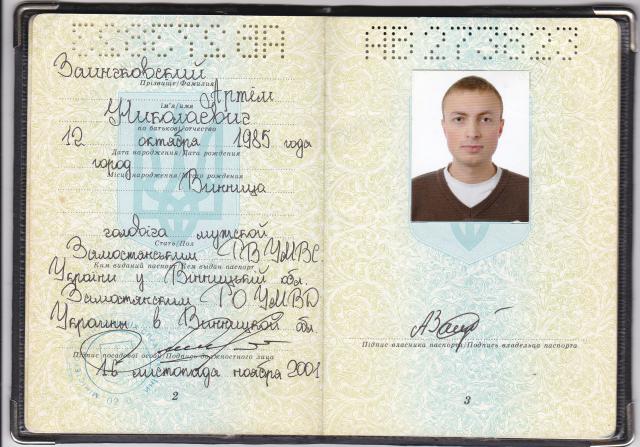 АВ
Заинчковский
Прізвище/Фамилия
Артём
ім'я/имя
Николаевич
по батькові/отчество
12 октября 1985 года
Дата народження/Дата рождения
город
Місце народження/Место рождения
Винница
чоловіча мужской
Стать/Пол
Замостянським РВ УМВС
Ким виданий паспорт/Кем выдан паспорт
України у Вінницькій обл.
Замостянским РО УМВД
Украины в Винницкой обл.
Підпис посадової особи/Подпись должностного лица
15 листопада ноября 2001
2
Підпис власника паспорта/Подпись владельца паспорта
3